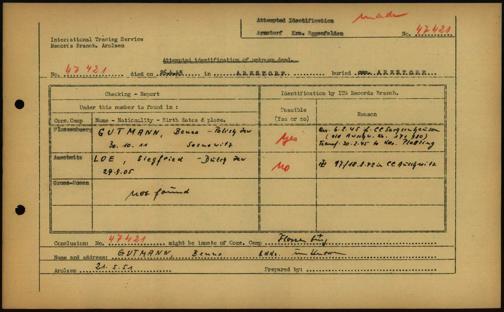 Attempted Identification
made
International Tracing Service
Records Branch, Arolsen
Arnstorf Krs. Eggenfelden
No. 47421
Attempted identification of unknown dead.
No. 47421 died on in ARNSTORF buried ARNSTORF
Checking - Report
Identification by ITS Records Branch.
Under this number is found:
Possible (Yes or no)
Reason
Conc.Camp Name - Nationality - Birth dates & place.
Flossenburg GUTMANN, Benno - Polish Jew
30.10.11 Sosnowitz
yes
Auschwitz LOE, Siegfried - Dutch Jew
29.9.05
no
in CC Auschwitz
Gross-Rosen
not found
Conclusion: No. 47421 might be inmate of Conc. Camp Flossenbürg
Name and address: GUTMANN, Benno unknown
Arolsen 21.5.51 Prepared by: